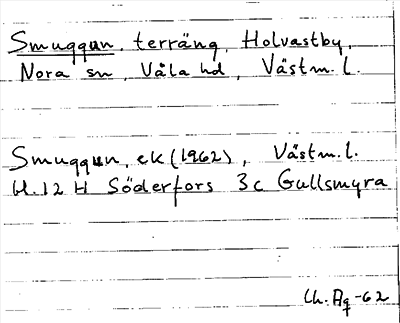 Smuggan, terräng, Holvastby,
Nora sn, Våla hd, Västm. l.
Smuggan, ek (1962), Västm. l.
bl. 12 H Söderfors 3c Gullsmyra
-62